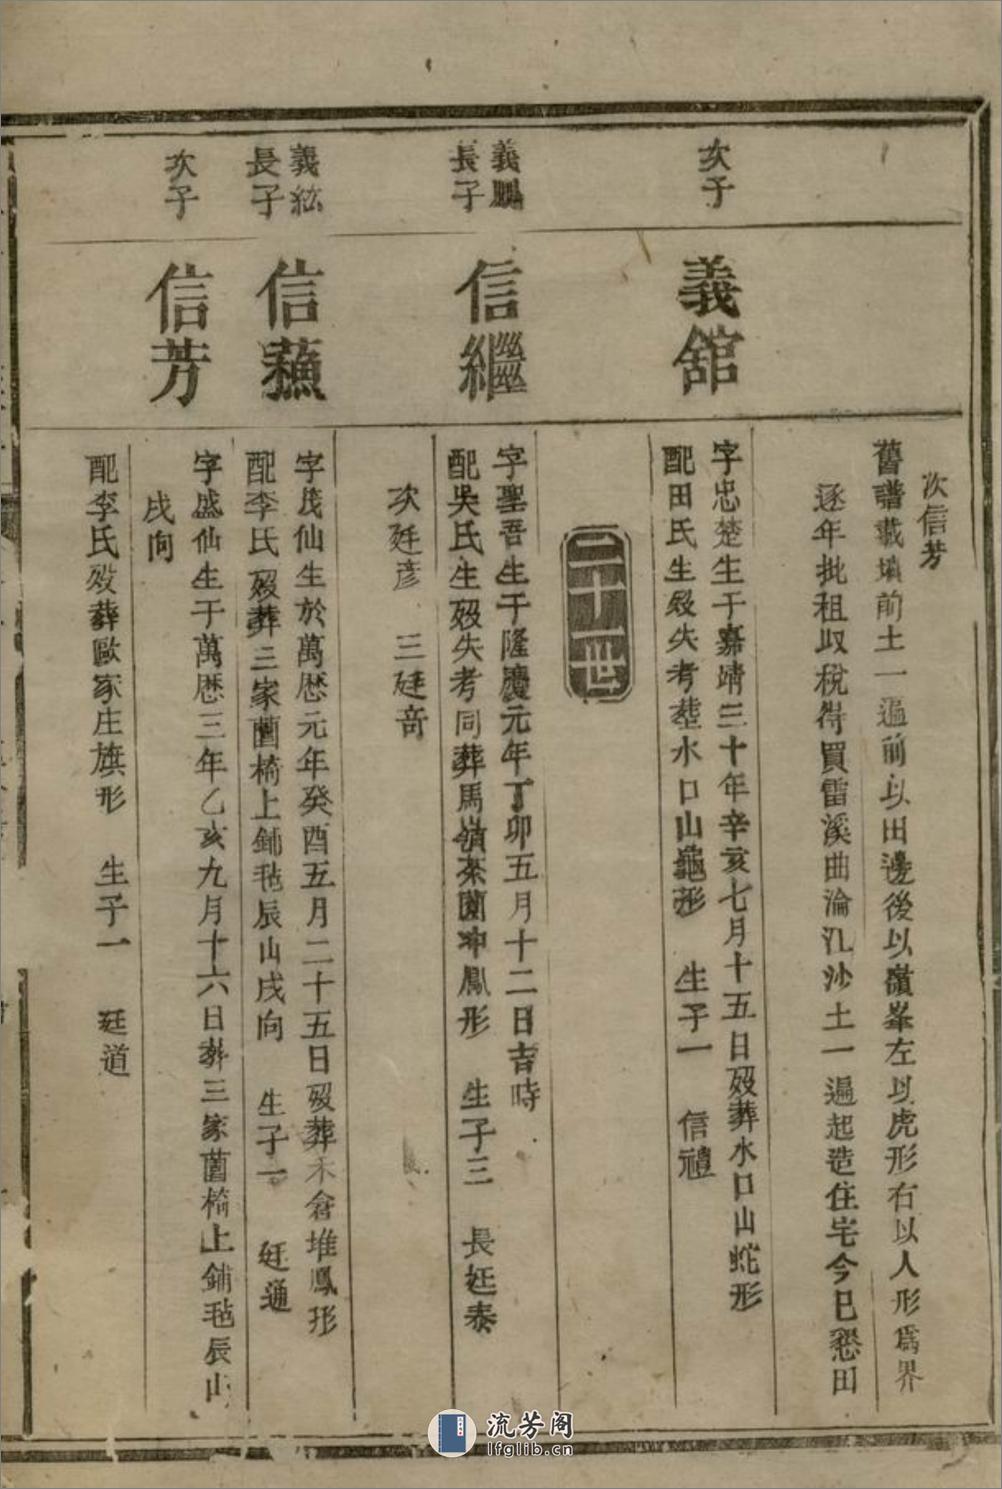 次信芳
舊譜載墳前土一遍前以田邊後以嶺峯左以虎形右以人形爲界
逐年批租収稅得買雷溪曲淪氿沙土一遍起造住宅今已懇田
次子
義舘
字忠楚生于嘉靖三十年辛亥七月十五日歿葬水口山蛇形
配田氏生歿失考塟水口山龜形 生子一 信禮
二十一世
義鵬
長子
信繼
字聖吾生于隆慶元年丁卯五月十二日吉時
配吳氏生歿失考同葬馬嶺茶園冲鳳形 生子三 長廷泰
次廷彦 三廷奇
義紘
長子
信蘓
字茂仙生於萬厯元年癸酉五月二十五日歿葬禾倉堆鳳形
配李氏歿葬三家薗椅上鋪毡辰山戌向 生子一 廷通
次子
信芳
字盛仙生于萬厯三年乙亥九月十六日葬三家薗椅上鋪毡辰山
戌向
配李氏歿葬歐家庄旗形 生子一 廷道
流芳阁
lfglib.cn